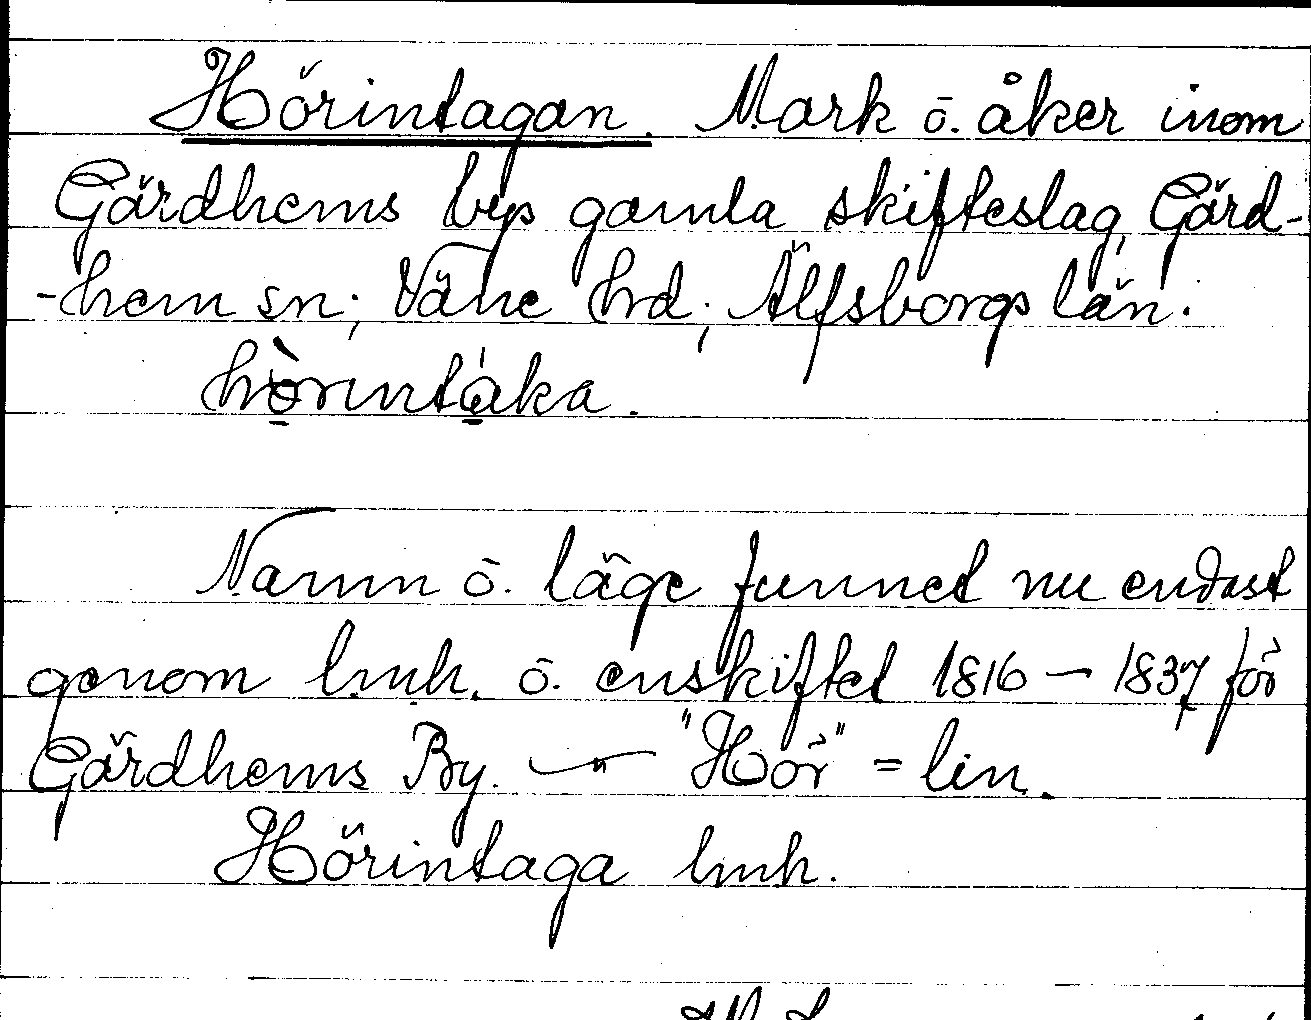 Hörintagan. Mark ō. åker inom
Gärdhems bys gamla skifteslag, Gärd-
-hem sn; Väne hrd; Älfsborgs län.
hò̱rıntá̱ka.
Namn ō. läge funnet nu endast
genom lmh. ō. enskiftet 1816 – 1837 för
Gärdhems By. — "Hör" = lin.
Hörintaga lmh.